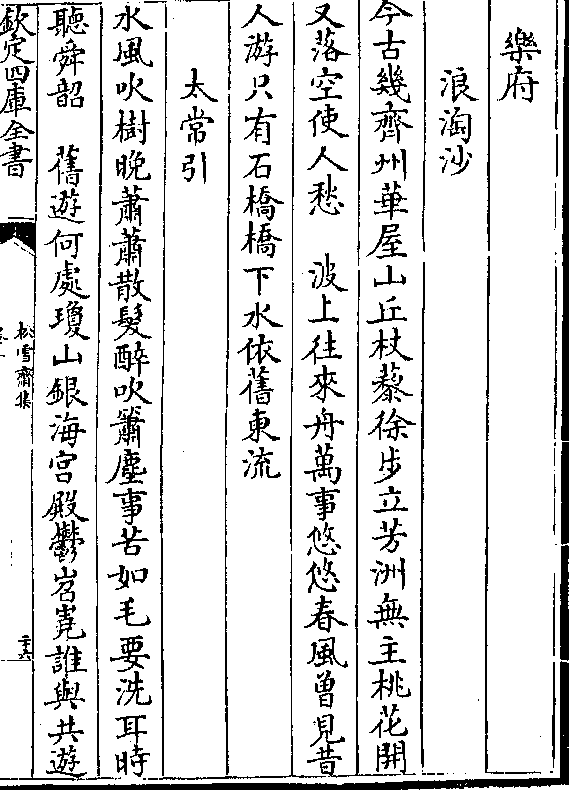 樂府
浪淘沙
今古幾齊州華屋山丘杖藜徐步立芳洲無主桃花開
又落空使人愁　波上往來舟萬事悠悠春風曾見昔
人游只有石橋橋下水依舊東流
太常引
水風吹樹晚蕭蕭散髮醉吹簫塵事苦如毛要洗耳時
聽舜韶　舊遊何處瓊山銀海宫殿鬱岧嶤誰與共遊
欽定四庫全書
松雪齋集
二十六